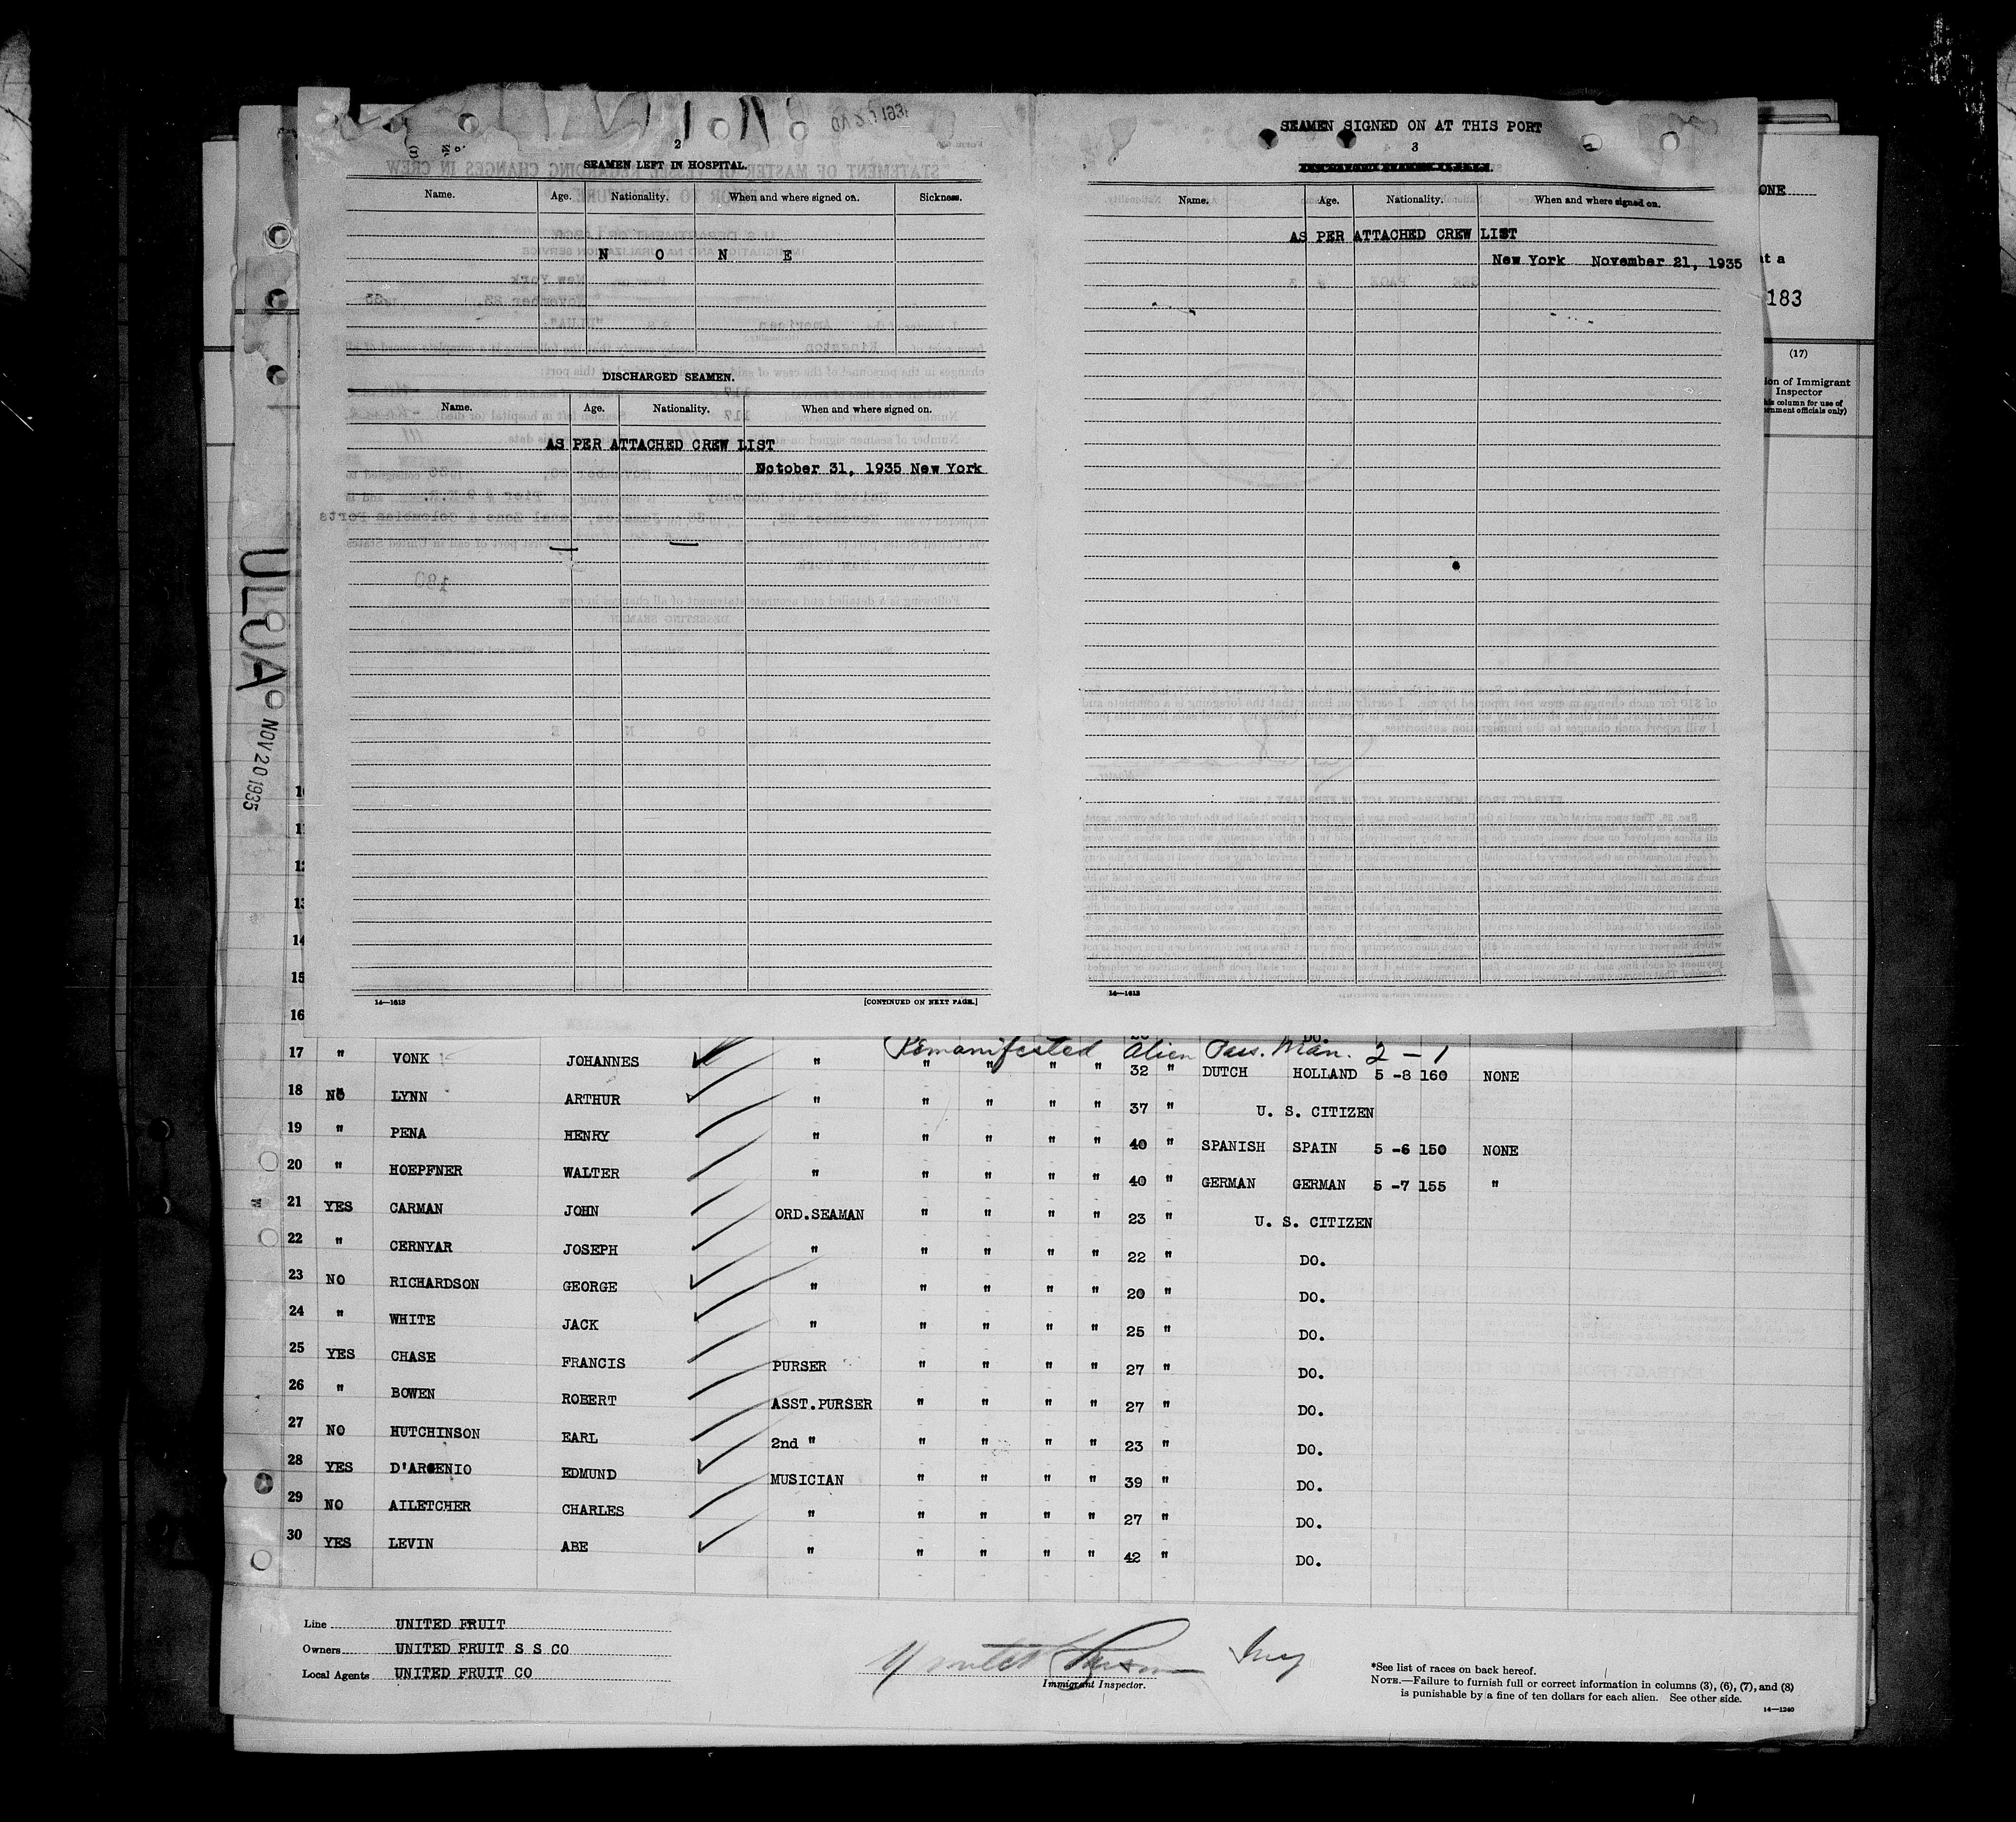 2
SEAMEN LEFT IN HOSPITAL.
Name. Age. Nationality. When and where signed on. Sickness.
N O N E
DISCHARGED SEAMEN.
Name. Age. Nationality. When and where signed on.
AS PER ATTACHED CREW LIST
October 31, 1935 New York
14—1613
[CONTINUED ON NEXT PAGE.]
SEAMEN SIGNED ON AT THIS PORT
3
Name. Age. Nationality. When and where signed on.
AS PER ATTACHED CREW LIST
New York November 21, 1935
14—1613
ONE
at a
183
(17)
ion of Immigrant
Inspector
his column for use of
ernment officials only)
ULUA
NOV 20 1935
10
11
12
13
14
15
16
DO.
Remanifested Alien Pass. Man. 2 - 1
17 " VONK JOHANNES " " " " " 32 " DUTCH HOLLAND 5 -8 160 NONE
18 NO LYNN ARTHUR " " " " " 37 " U. S. CITIZEN
19 " PENA HENRY " " " " " 40 " SPANISH SPAIN 5 -6 150 NONE
20 " HOEPFNER WALTER " " " " " 40 " GERMAN GERMAN 5 -7 155 "
21 YES CARMAN JOHN ORD.SEAMAN " " " " 23 " U. S. CITIZEN
22 " CERNYAR JOSEPH " " " " " 22 " DO.
23 NO RICHARDSON GEORGE " " " " " 20 " DO.
24 " WHITE JACK " " " " " 25 " DO.
25 YES CHASE FRANCIS PURSER " " " " 27 " DO.
26 " BOWEN ROBERT ASST.PURSER " " " " 27 " DO.
27 NO HUTCHINSON EARL 2nd " " " " " 23 " DO.
28 YES D'ARGENIO EDMUND MUSICIAN " " " " 39 " DO.
29 NO AILETCHER CHARLES " " " " " 27 " DO.
30 YES LEVIN ABE " " " " " 42 " DO.
Line UNITED FRUIT
Owners UNITED FRUIT S S CO
Local Agents UNITED FRUIT CO
Immigrant Inspector.
*See list of races on back hereof.
NOTE.—Failure to furnish full or correct information in columns (3), (6), (7), and (8)
is punishable by a fine of ten dollars for each alien. See other side.
14—1240